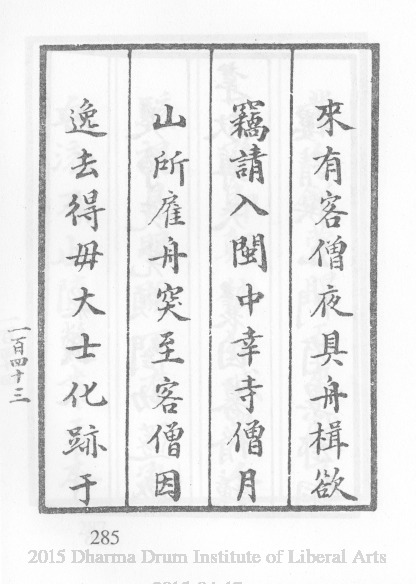 來有客僧夜具舟楫欲
竊請入閩中幸寺僧月
山所雇舟突至客僧因
逸去得毋大士化跡于
一百四十三
285
2015 Dharma Drum Institute of Liberal Arts